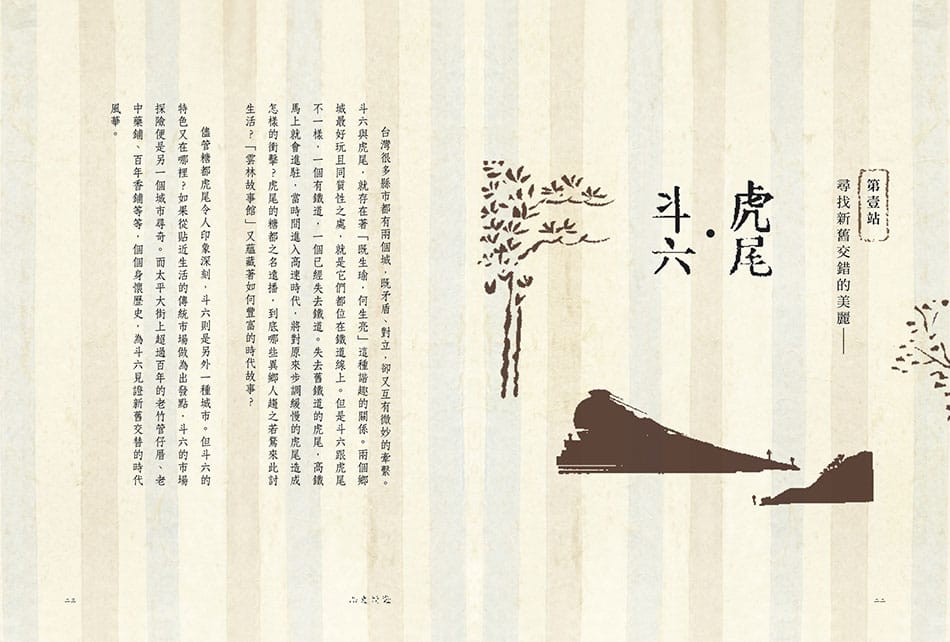 第壹站
尋找新舊交錯的美麗——
虎尾
・
斗六
台灣很多縣市都有兩個城，既矛盾、對立，卻又互有微妙的牽繫。
斗六與虎尾，就存在著「既生瑜，何生亮」這種諧趣的關係。兩個鄉
城最好玩且同質性之處，就是它們都位在鐵道線上。但是斗六跟虎尾
不一樣，一個有鐵道，一個已經失去鐵道。失去舊鐵道的虎尾，高鐵
馬上就會進駐，當時間進入高速時代，將對原來步調緩慢的虎尾造成
怎樣的衝擊？虎尾的糖都之名遠播，到底哪些異鄉人趨之若鶩來此討
生活？「雲林故事館」又蘊藏著如何豐富的時代故事？
儘管糖都虎尾令人印象深刻，斗六則是另外一種城市。但斗六的
特色又在哪裡？如果從貼近生活的傳統市場做為出發點，斗六的市場
探險便是另一個城市尋奇。而太平大街上超過百年的老竹管仔厝、老
中藥鋪、百年香鋪等等，個個身懷歷史，為斗六見證新舊交替的時代
風華。